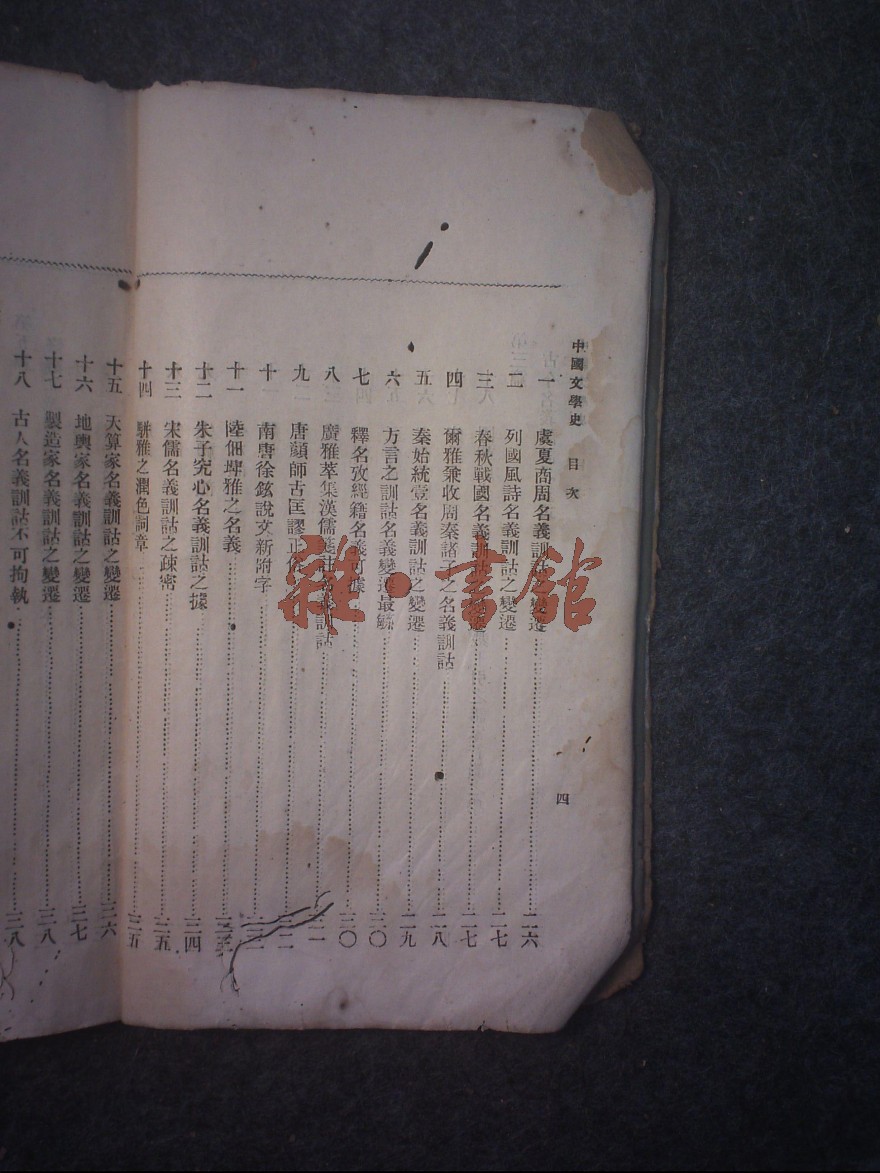 中國文學史 目次
四
一 虞夏商周名義訓詁之變遷 二六
二 列國風詩名義訓詁之變遷 二七
三 春秋戰國名義訓詁變遷 二七
四 爾雅兼收周秦諸子之名義訓詁 二八
五 秦始統壹名義訓詁之變遷 二九
六 方言之訓詁名義變遷最繁 三〇
七 釋名攷經籍名義可據 三〇
八 廣雅萃集漢儒箋註名義訓詁
九 唐顏師古匡謬正俗
十 南唐徐鉉說文新附字
十一 陸佃埤雅之名義
十二 朱子究心名義訓詁之據 三四
十三 宋儒名義訓詁之疎密 三五
十四 駢雅之潤色詞章 三五
十五 天算家名義訓詁之變遷 三六
十六 地輿家名義訓詁之變遷 三七
十七 製造家名義訓詁之變遷 三八
十八 古人名義訓詁不可拘執 三八
雜·書館